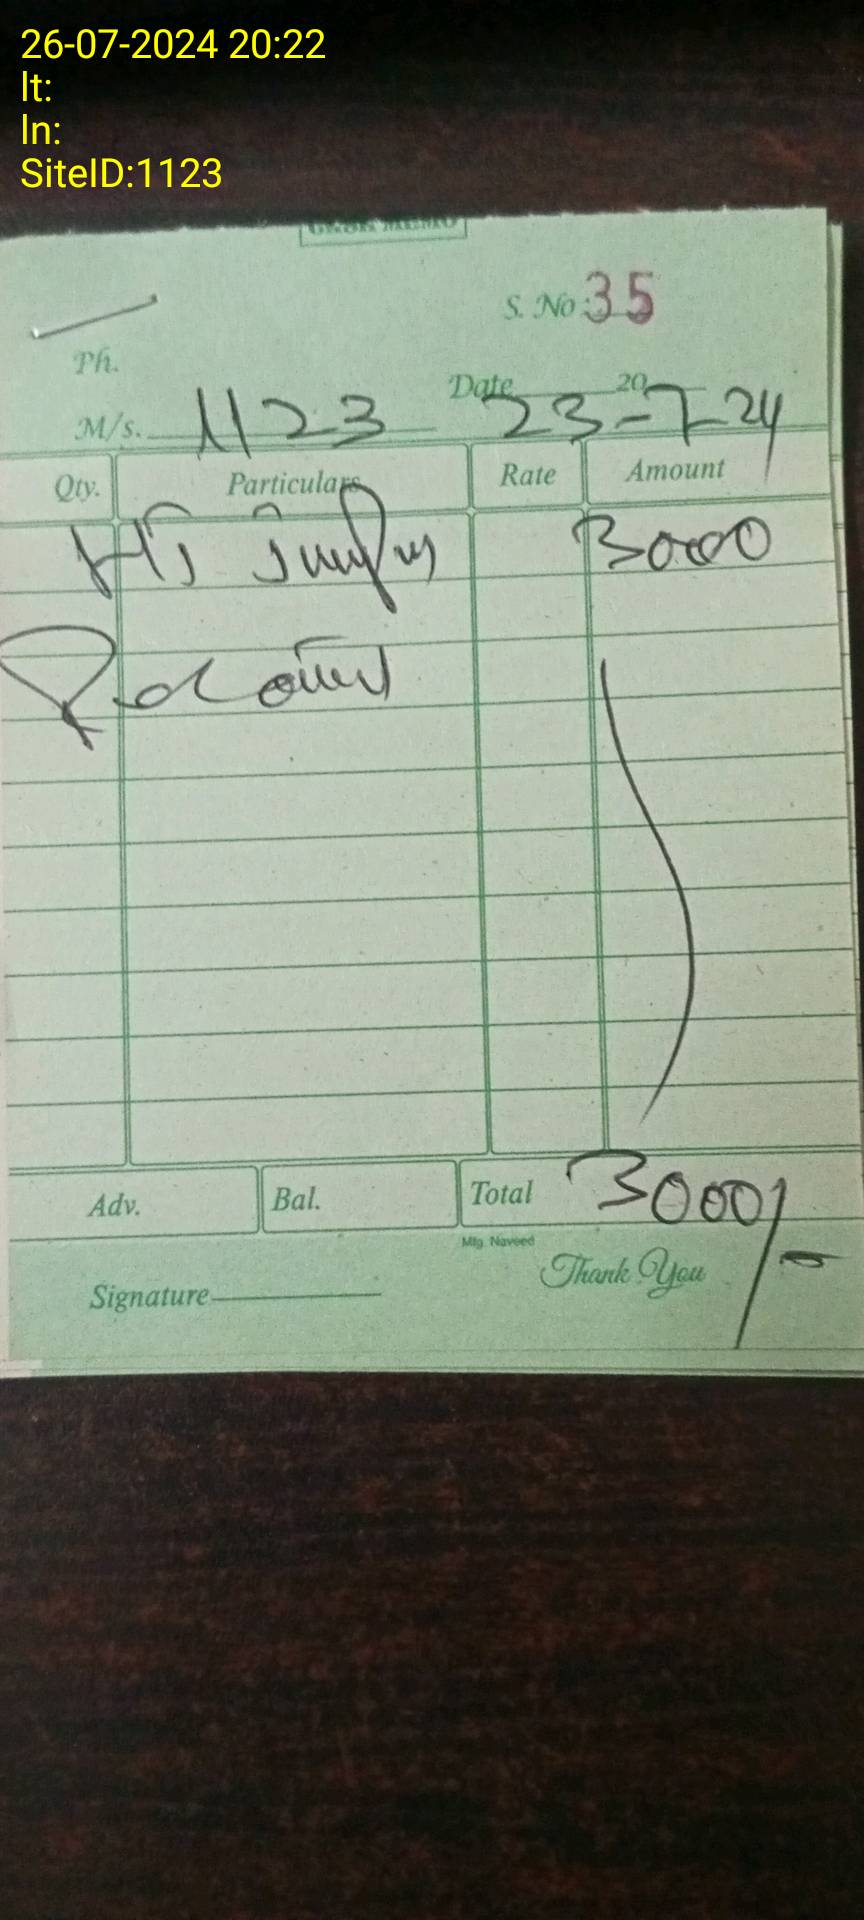 26-07-2024 20:22
lt:
ln:
SiteID:1123
CASH MEMO
S. No 35
Ph.
Date 20
23-7-24
M/s. 1123
Qty. Particulars Rate Amount
3000
Adv. Bal. Total 3000/-
Mfg. Naveed
Thank You
Signature